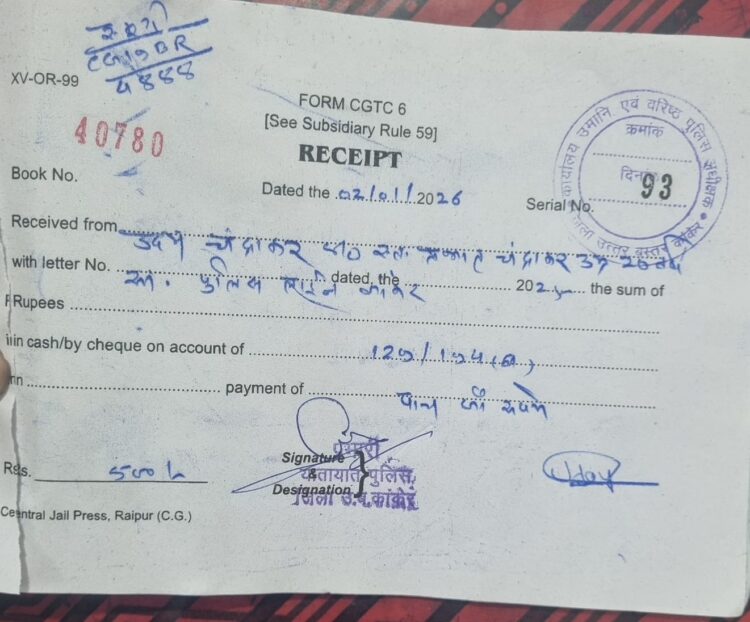 CG19BR
4888
XV-OR-99
FORM CGTC 6
[See Subsidiary Rule 59]
40780
RECEIPT
Book No.
Dated the 02/01/2026
Serial No. 93
कार्यालय उमानि. एवं वरिष्ठ पुलिस अधीक्षक
जिला उत्तर बस्तर कांकेर
क्रमांक
Received from उदय चंद्राकर चंद्राकर उम्र
with letter No. dated, the 202 the sum of
पुलिस लाईन कांकेर
Rupees
in cash/by cheque on account of
payment of पांच सौ रूपये
Rs. 500/-
Signature
&
Designation
प्रभारी
यातायात पुलिस,
जिला उ.ब.कांकेर
Uday
Central Jail Press, Raipur (C.G.)